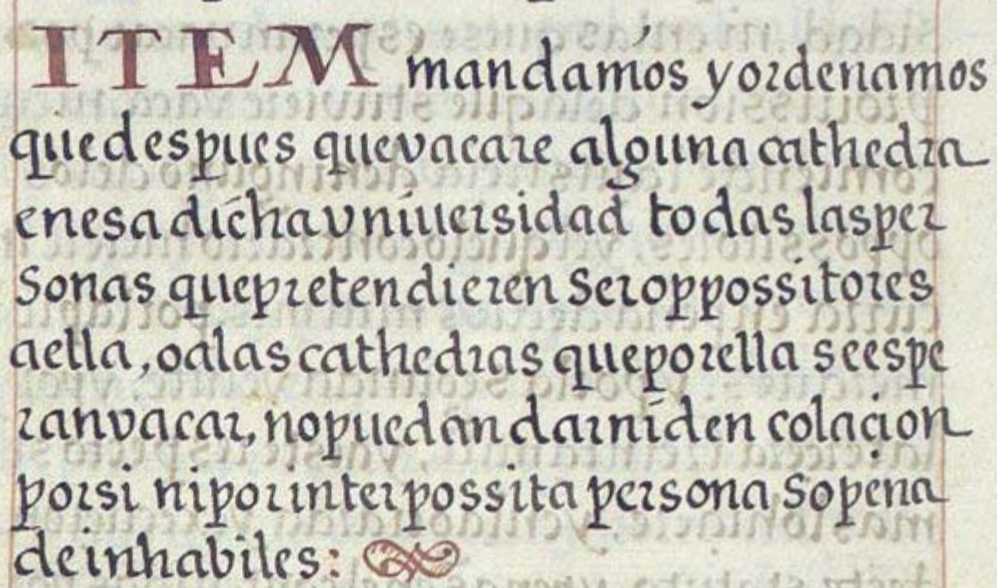 ITEM mandamos y ordenamos
que despues que vacare alguna cathedra
en esa dicha vniuersidad todas las per
sonas que pretendieren ser oppossitores
a ella, o a las cathedras que por ella se espe
ran vacar, no puedan dar ni den colaçion
por si ni por interpossita persona so pena
de inhabiles: